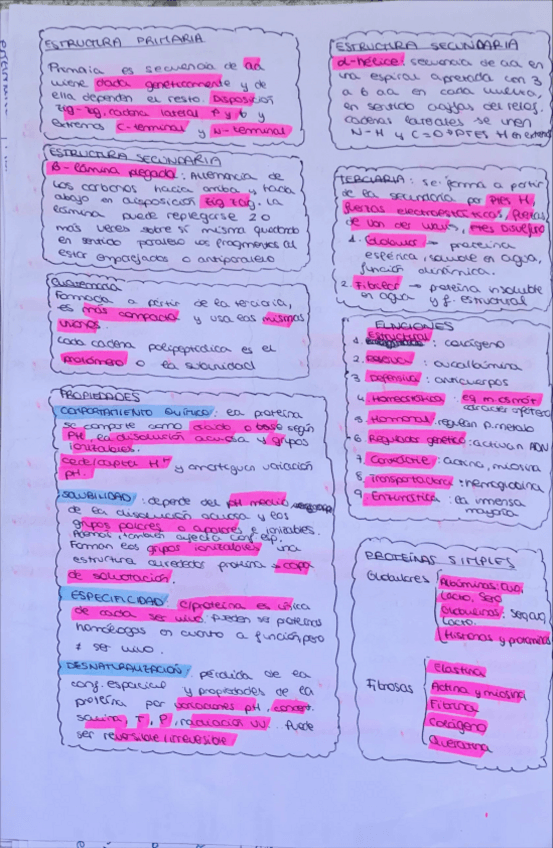 ESTRUCTURA PRIMARIA
Primaria es secuencia de aa
viene dada genéticamente y de
ella dependen el resto. Disposición
zig-zag, cadena lateral ↑ y ↓ y
extremos C-terminal y N-terminal
ESTRUCTURA SECUNDARIA
B-lámina plegada: Alternancia de
los carbonos hacia arriba y hacia
abajo en disposición zig zag. La
lámina puede replegarse 2 o
más veces sobre sí misma quedando
en sentido paralelo los fragmentos al
estar emparejados o antiparalelo
Cuaternaria
Formada a partir de la terciaria,
es más compacta y usa las mismas
uniones.
cada cadena polipeptídica es el
protómero o la subunidad
PROPIEDADES
COMPORTAMIENTO QUÍMICO: la proteína
se comporta como ácido o base según
PH, la disolución acuosa y grupos
ionizables.
Cede/capta H+ y amortiguan variación
pH.
SOLUBILIDAD: depende del pH medio,
de la disolución acuosa y los
grupos polares o apolares e ionizables.
Además, también afecta conf. esp.
Forman los grupos ionizables una
estructura alrededor proteína = capa
de solvatación.
ESPECIFICIDAD: C/proteína es única
de cada ser vivo. Pueden ser proteínas
homólogas en cuanto a función pero
≠ ser vivo.
DESNATURALIZACIÓN: pérdida de la
conf. espacial y propiedades de la
proteína por variaciones pH, concent.
salina, T, P, radiación UV. Puede
ser reversible/irreversible
ESTRUCTURA SECUNDARIA
α-hélice: secuencia de aa en
una espiral apretada con 3
a 6 aa en cada vuelta,
en sentido agujas del reloj.
cadenas laterales se unen
N-H y C=O + ptes H
TERCIARIA: se forma a partir
de la secundaria por Ptes H,
fuerzas electroestáticas, fuerzas
de Van der Waals, Ptes disulfuro
1. Globular → proteína
esférica, soluble en agua,
función dinámica.
2. Fibrilar → proteína insoluble
en agua y f. estructural
FUNCIONES
1. Estructural: colágeno
2. Reserva: ovoalbúmina
3. Defensiva: anticuerpos
4. Homeostática: eq. m. osmót
5. Hormonal: regulan p. metabo
6. Regulador genético: activan ADN
7. Contráctil: actina, miosina
8. Transportadora: hemoglobina
9. Enzimática: la inmensa
mayoría
PROTEÍNAS SIMPLES
Globulares
Albúminas: Ovo,
Lacto, Sero
Globulinas: Sero, ovo,
Lacto.
Histonas y protaminas
Fibrosas
Elastina
Actina y miosina
Fibrina
Colágeno
Queratina